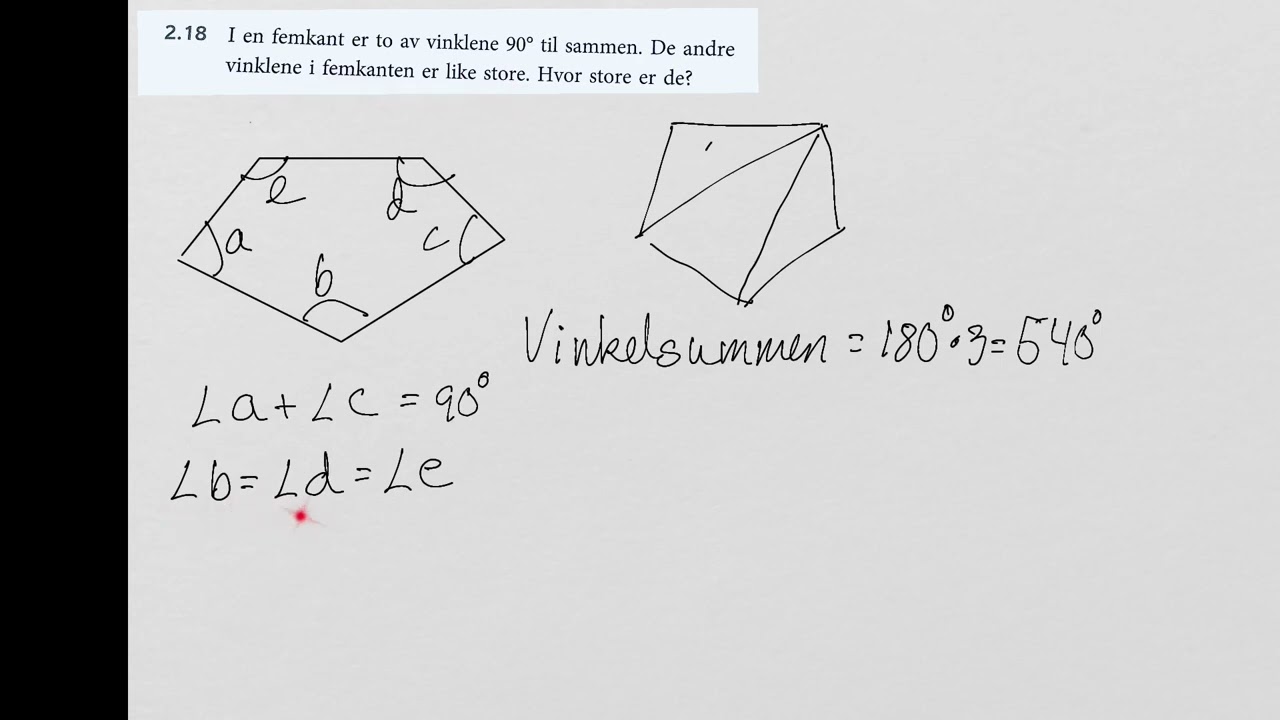 2.18 I en femkant er to av vinklene 90° til sammen. De andre
vinklene i femkanten er like store. Hvor store er de?
e
d
a
c
b
Vinkelsummen = 180° · 3 = 540°
∠a + ∠c = 90°
∠b = ∠d = ∠e